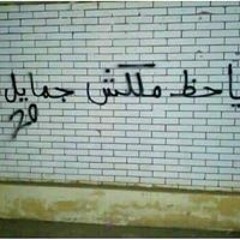 ياحظ ملكش جمايل
20